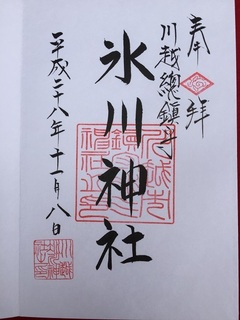 奉拝
川越總鎮守
氷川神社
平成二十八年十一月八日